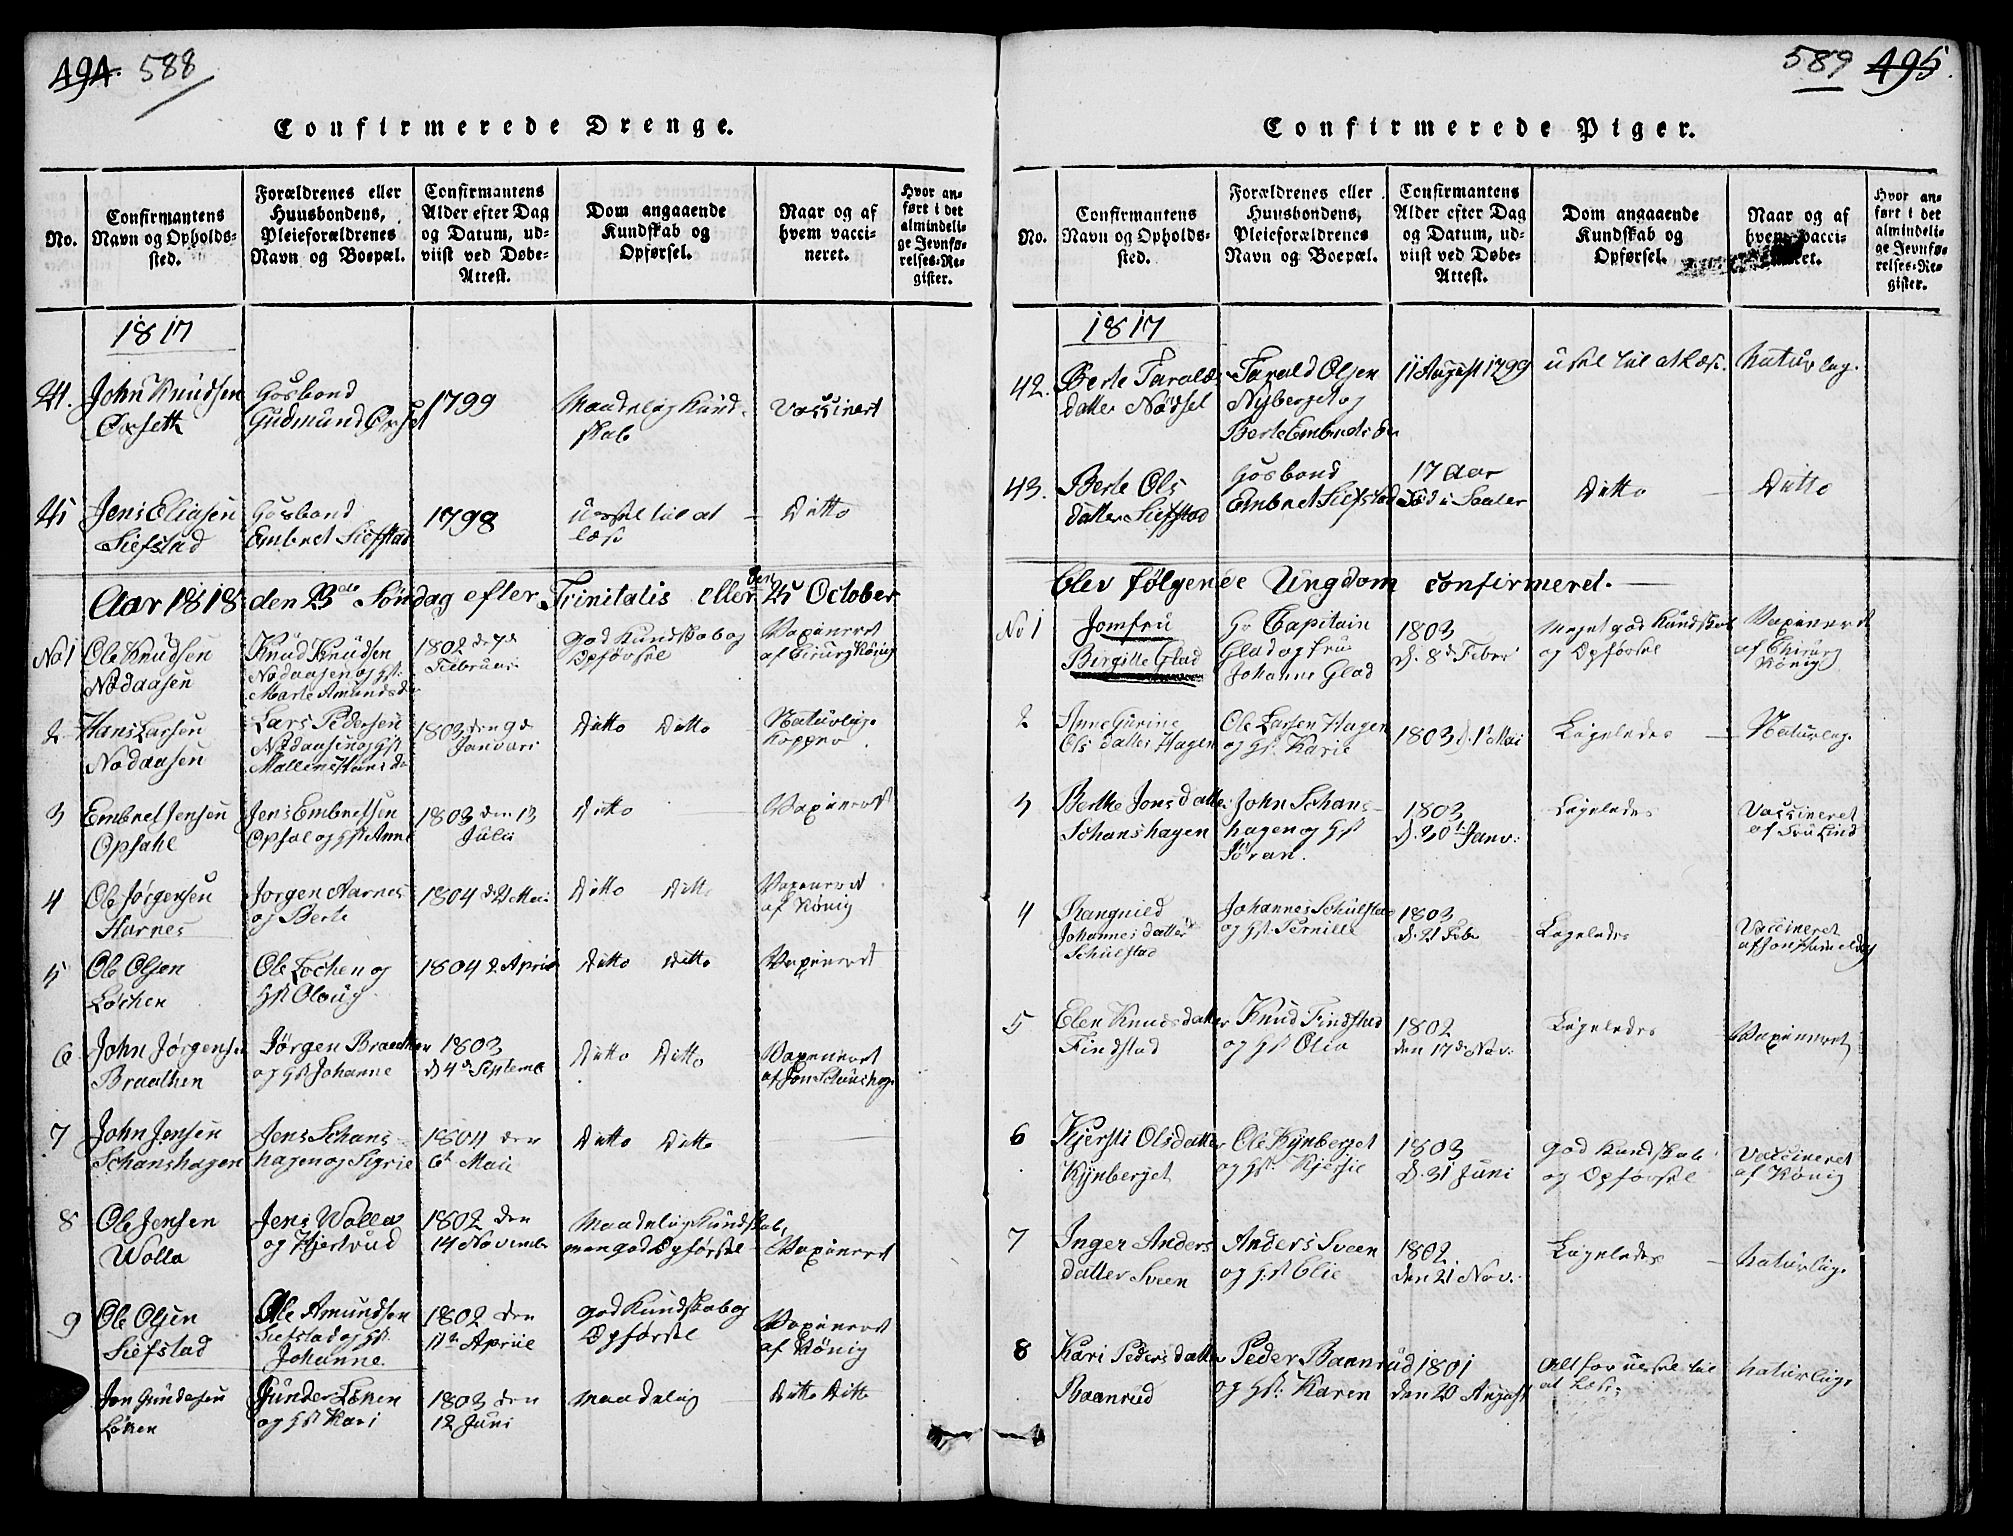 494. 588
Confirmerede Drenge.
No.
Confirmantens
Navn og Opholds-
sted.
Forældrenes eller
Huusbondens,
Pleieforældrenes
Navn og Boepæl.
Confirmantens
Alder efter Dag
og Datum, ud-
viist ved Døbe-
Attest.
Dom angaaende
Kundskab og
Opførsel.
Naar og af
hvem vacci-
neret.
Hvor an-
ført i det
almindeli-
ge Jevnfø-
relses-Re-
gister.
1817
24. John Knudsen
Oxseth
Gosbond
Gudmund Oxset
1799
Maadelig Kund-
skab
Vaccinert
25 Jens Eliasen
Siefstad
Gosbond
Embret Siefstad
1798
ussel til at
læse
Ditto
Aar 1818 den 23de Søndag efter Trinitatis eller den 25 October
No 1 Ole Knudsen
Nodaasen
Knud Knudsen
Nodaasen og Hst:
Marte Amunds Dr
1802 de 7de
Februari
god Kundskab og
Opførsel
Vaxineret
af Cirurg König
2 Hans Larsen
Nodaasen
Lars Pedersen
Nodaasen og Hst
Mallene Hans Dr
1803 den 9de
Januari
Ditto Ditto
Naturlige
Kopper
3 Embret Jensen
Opsahl
Jens Embretsen
Opsal og Hst Anne
1803 den 13
Julii
Ditto
Vaxineret
4 Ole Jørgensen
Harnes
Jorgen Aarnes
og Berte
1804 d 2 Mai
Ditto Ditto
Vaxineret
af König
5 Ole Olsen
Løchen
Ole Lochen og
Hst Oloug
1804 2 April
Ditto Ditto
Vaxineret
6 John Jørgensen
Braathen
Jörgen Braathen
og Hst Johanne
1803
d 4de Septembr
Ditto Ditto
Vaxineret
af Jon Schanshag
7 John Jensen
Schanshagen
Jens Schans-
hagen og Sigrie
1804 den
6t Maii
Ditto Ditto
8 Ole Jensen
Wolla
Jens Wolla
og Hjertrud
1802 den
14 Novembr
Maadelig Kundskab,
men god Opførsel
Vaxineret
9 Ole Olsen
Siefstad
Ole Amundsen
Siefstad og Hst:
Johanne.
1802 den
11te Apriil
god Kundskab og
Opførsel
Vaxineret
af König
Jon Gundersen
Løken
Gunder Löken
og Hst Kari
1803 den
12 Juni
Maadelig
Ditto Ditto
589 495.
Confirmerede Piger.
No.
Confirmantens
Navn og Opholds-
sted.
Forældrenes eller
Huusbondens,
Pleieforældrenes
Navn og Boepæl.
Confirmantens
Alder efter Dag
og Datum, ud-
viist ved Døbe-
Attest.
Dom angaaende
Kundskab og
Opførsel.
Naar og af
hvem vacci-
neret.
Hvor an-
ført i det
almindeli-
ge Jevnfø-
relses-Re-
gister.
1817
42. Berte Farals
datter Nödsel
Farald Olsen
Nyberget og
Berte Embrets Dr
11 August 1799
ussel til at Læse.
Naturlig.
43. Berte Ols
datter Siefstad
Gosbond
Embret Siefstad
17 Aar
Föd i Soeler
Ditto
Ditto
blev følgende Ungdom confirmeret.
No 1 Jomfru
Birgitte Glad
Hr Capitain
Glad og Fru
Johanne Glad
1803
d. 8de Febr
Meget god Kundskab
og Opførsel
Vaxineret
af Chirurg
König
2 Anne Gurine
Ols datter Hagen
Ole Larsen Hagen
og Hst. Karie
1803 d. 1t Mai
Ligeledes
Naturlig.
3 Berthe Jons datter
Schanshagen
John Schans-
hagen og Hst
Jöran.
1803
d. 20t Janv:
Ligeledes
Vaccineret
af Fru Lind
4 Rangnied
Johannes datter
Schulstad
Johannes Schulstad
og Hst: Pernille
1803
d. 21 Febr
Ligeledes
Vaccineret
5 Elen Knuds datter
Findstad
Knud Findstad
og Hst Olia
1802
den 17de Nov:
Ligeledes
Vaxineret
6 Kjersti Olsdatter
Kynberget
Ole Kynberget
og Hst: Kjersie
1803
d. 31 Juni
god Kundskab
og Opførsel
Vaccineret
af König
7 Inger Anders
datter Sveen
Anders Sveen
og Hst Elie
1802
den 21 Nov:
Ligeledes
Naturlige
8 Kari Peders datter
Baanrud
Peder Baanrud
og Hst: Karen
1801
den 20 August
Alt for ussel til
at Læse
Naturlige